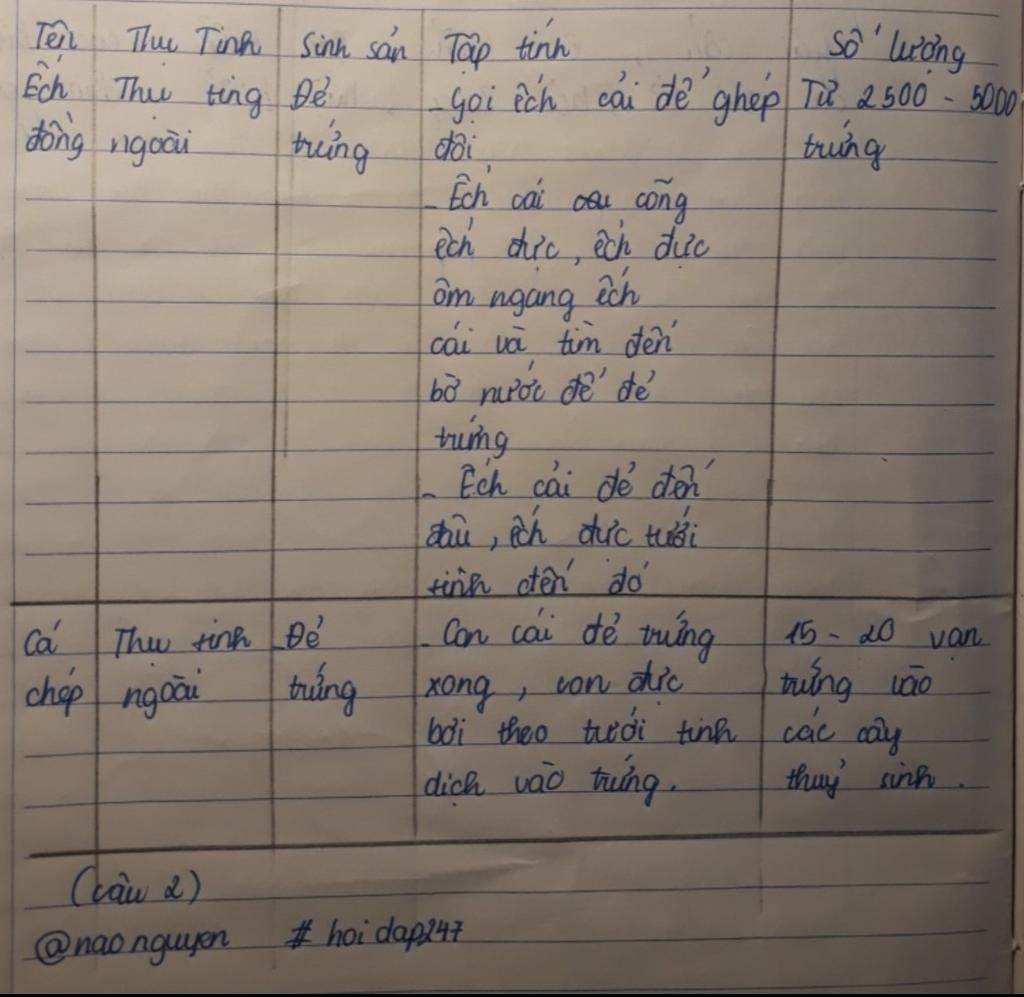 Tên Thụ Tinh Sinh sản Tập tính Số lượng
Ếch Thụ ting Đẻ - Gọi ếch cái để ghép Từ 2500 - 5000
đồng ngoài trứng đôi trứng
- Ếch cái cõng
ếch đực, ếch đực
ôm ngang ếch
cái và tìm đến
bờ nước để đẻ
trứng
- Ếch cái đẻ đến
đâu, ếch đực tưới
tinh đến đó
Cá Thụ tinh Đẻ - Con cái đẻ trứng 15 - 20 vạn
chép ngoài trứng xong, con đực trứng vào
bơi theo tưới tinh các cây
dịch vào trứng. thuỷ sinh.
(câu 2)
@naonguyen # hoidap247